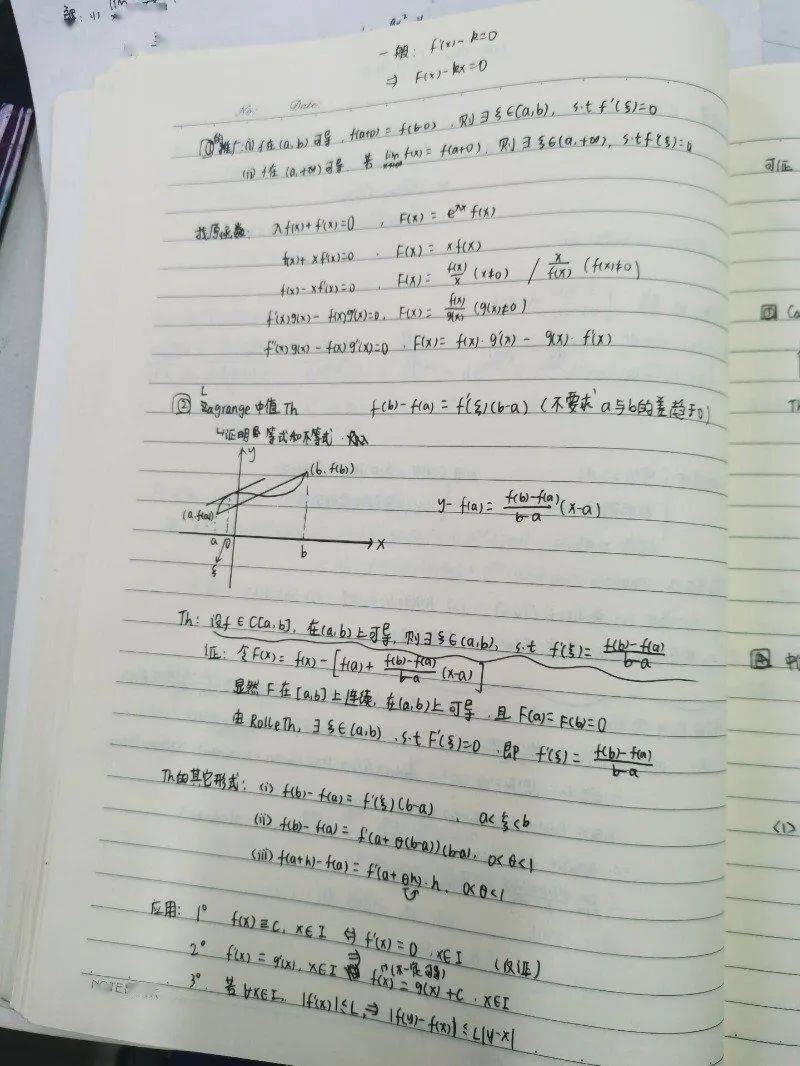 一般: f'(x)-k=0
⇒ F(x)-kx=0
No: Date:
① 推广: (i) f在(a,b)可导, f(a+0)=f(b-0), 则∃ξ∈(a,b), s.t f'(ξ)=0
(ii) f在(a,+∞)可导 若 lim f(x)=f(a+0), 则∃ξ∈(a,+∞), s.t f'(ξ)=0
找原函数: λf(x)+f'(x)=0 , F(x)=e^{λx}f(x)
f(x)+xf'(x)=0 , F(x)=xf(x)
f(x)-xf'(x)=0 , F(x)=f(x)/x (x≠0) / x/f(x) (f(x)≠0)
f'(x)g(x)-f(x)g'(x)=0, F(x)=f(x)/g(x) (g(x)≠0)
f''(x)g(x)-f(x)g''(x)=0 , F(x)=f(x)·g'(x)-g(x)·f'(x)
② Lagrange中值Th f(b)-f(a)=f'(ξ)(b-a) (不要求a与b的差趋于0)
↳证明 等式和不等式
y
(b,f(b))
(a,f(a))
y-f(a)=f(b)-f(a)/b-a·(x-a)
a 0 b x
ξ
Th: 设f∈C[a,b], 在(a,b)上可导, 则∃ξ∈(a,b), s.t f'(ξ)=f(b)-f(a)/b-a
证: 令F(x)=f(x)-[f(a)+f(b)-f(a)/b-a(x-a)]
显然F在[a,b]上连续, 在(a,b)上可导, 且F(a)=F(b)=0
由RolleTh, ∃ξ∈(a,b), s.t F'(ξ)=0, 即 f'(ξ)=f(b)-f(a)/b-a
Th的其它形式: (i) f(b)-f(a)=f'(ξ)(b-a) , a<ξ<b
(ii) f(b)-f(a)=f'(a+θ(b-a))(b-a), 0<θ<1
(iii) f(a+h)-f(a)=f'(a+θh)·h, 0<θ<1
应用: 1° f(x)≡C, x∈I ⇔ f'(x)=0, x∈I (反证)
2° f'(x)=g'(x), x∈I ⇒ f(x)=g(x)+C, x∈I
3° 若∀x∈I, |f'(x)|≤L, ⇒ |f(y)-f(x)|≤L|y-x|
NOTE
可证
Th
(1)